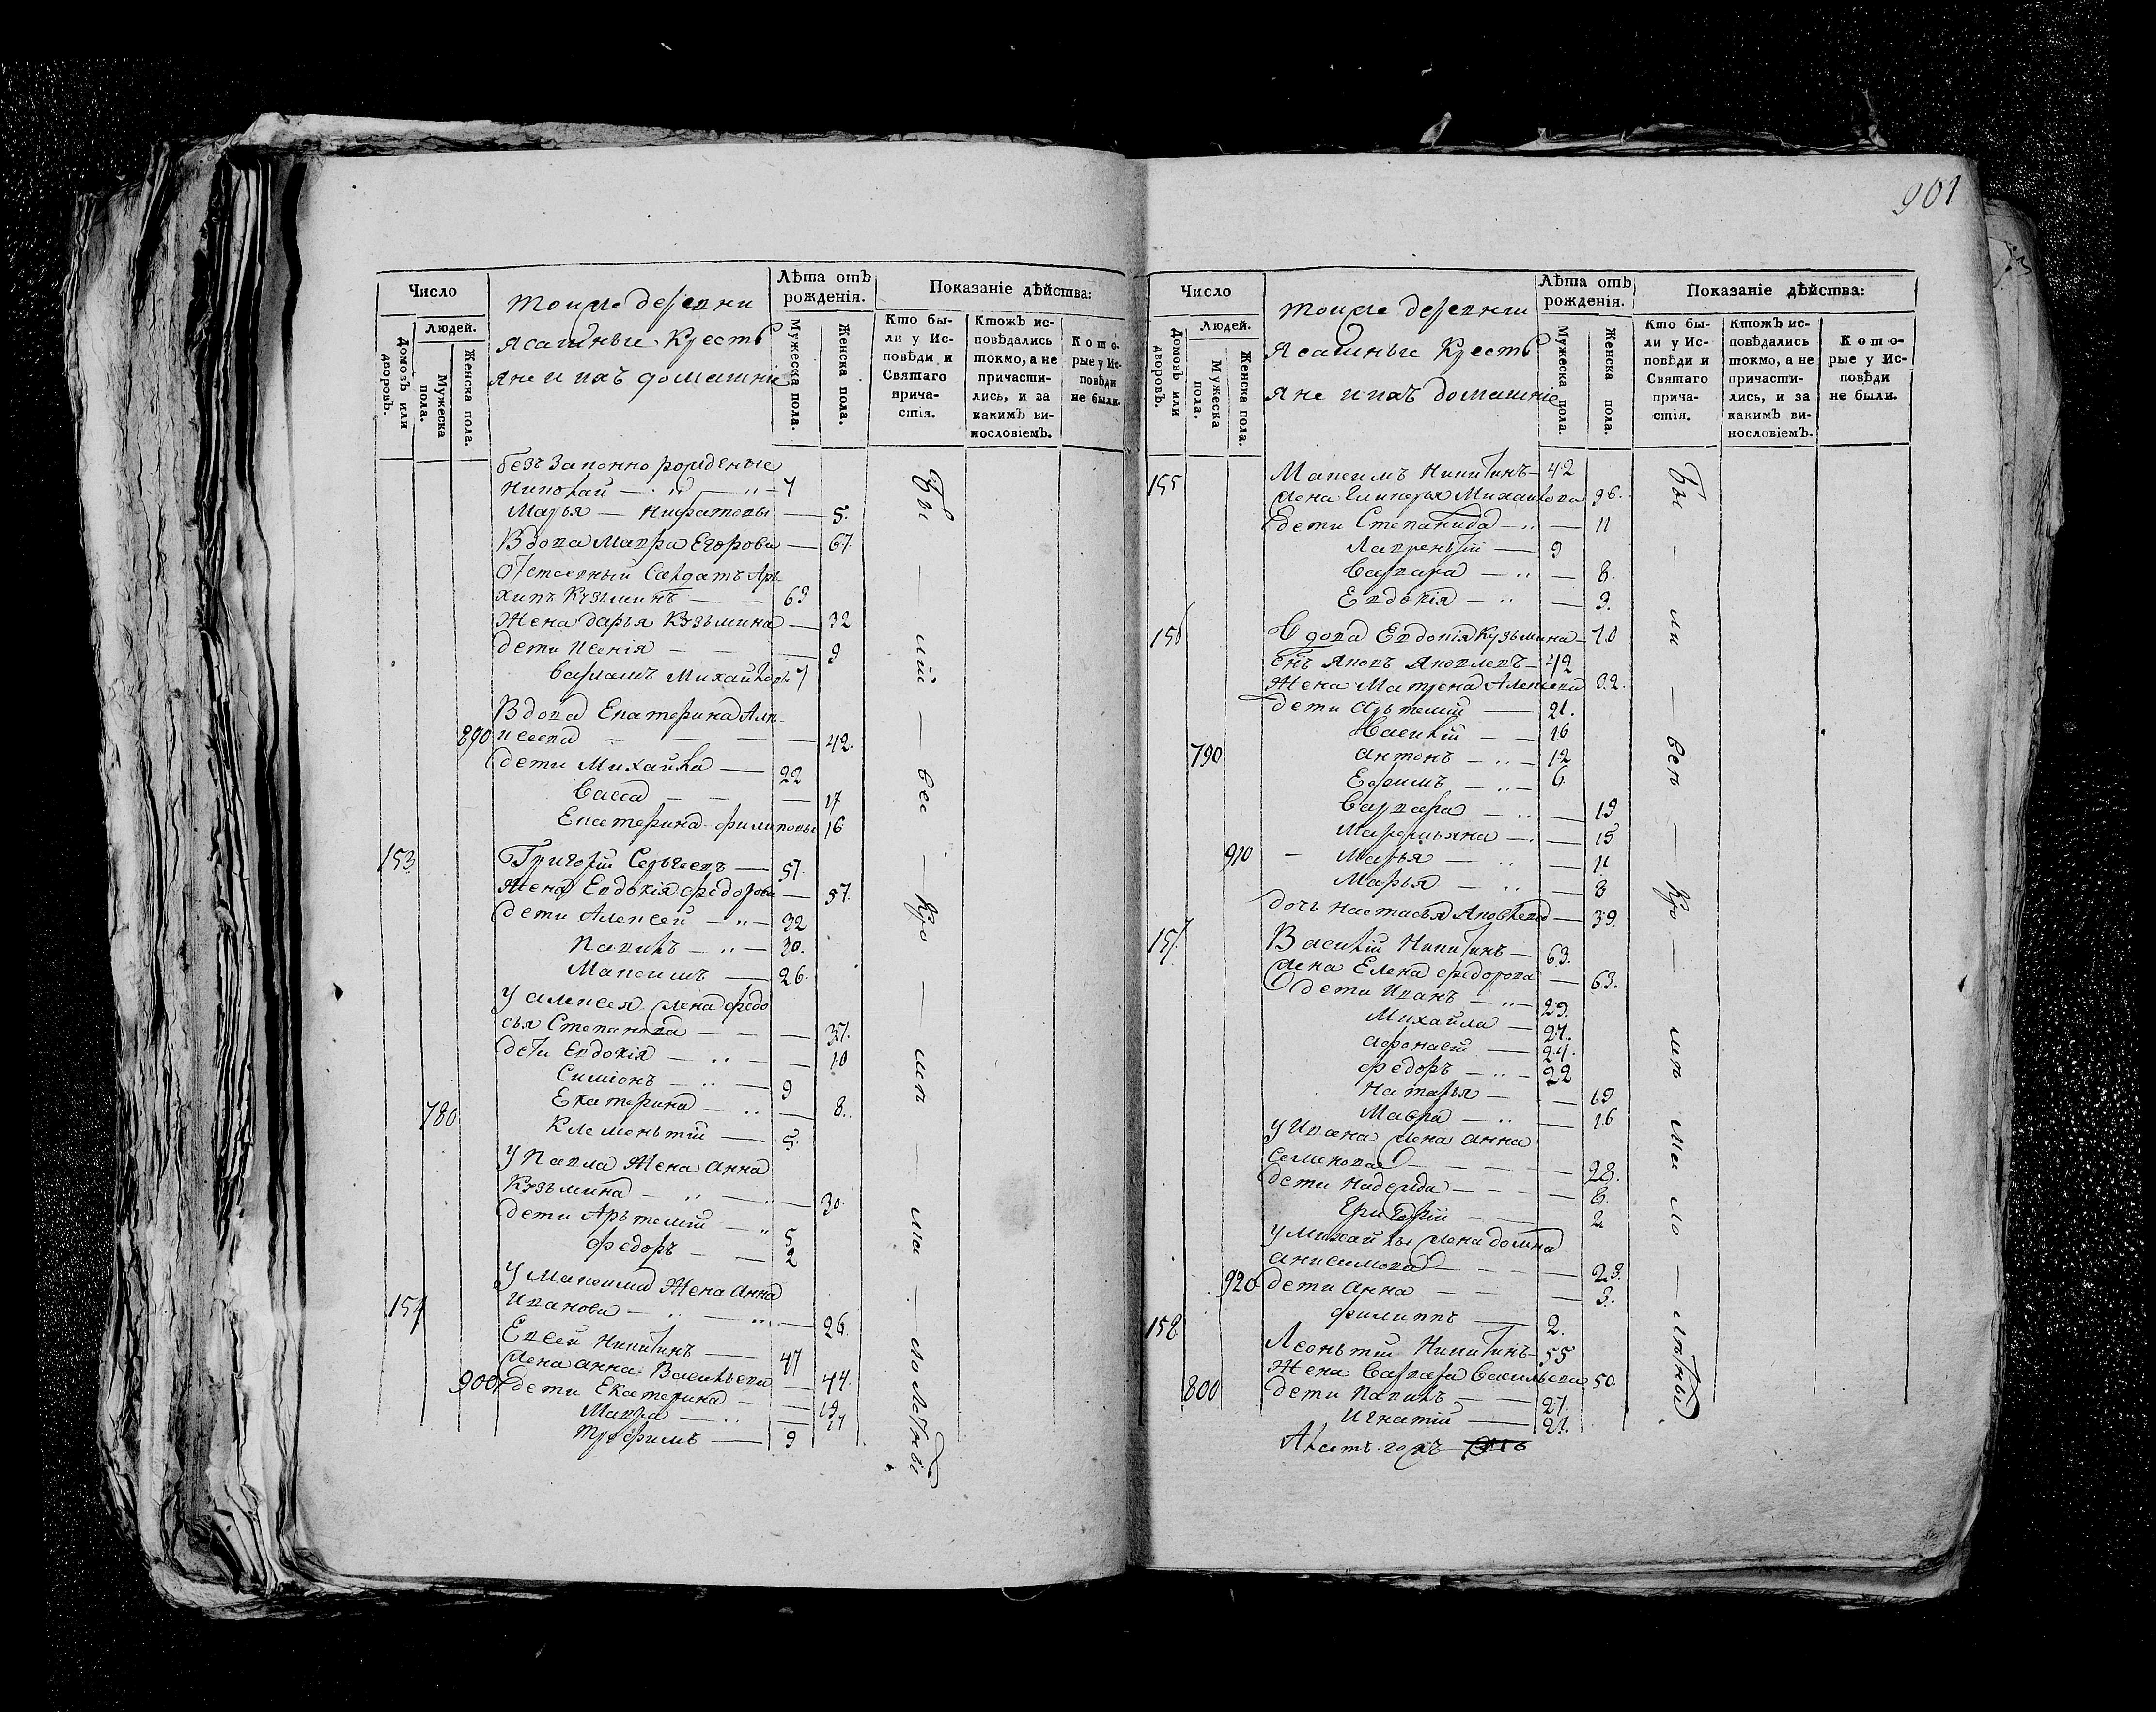 901
Число
Людей.
Домовъ или дворовъ.
Мужеска пола.
Женска пола.
тоиже деревни
ясашныя Кресть
яне и ихъ домашніе
Лѣта отъ рожденія.
Мужеска пола.
Женска пола.
Показаніе дѣйства:
Кто были у Исповѣди и Святаго причастія.
Ктожъ исповѣдались токмо, а не причастились, и за какимъ винословіемъ.
Которые у Исповѣди не были.
Николай 7
Марья 5.
Вдова Мавра Егорова 67.
хипъ Кузьминъ 69
Жена дарья Кузьмина 32
дети 9
Варламъ Михайловы 7
Вдова Екатерина Але-
890 ксеева 42.
дети Михайла 22
Васса 17
Екатерина филиповы 16
153 Григорій Сергеевъ 57.
Жена Евдокія федорова 57.
дети Алексей 32
Павилъ 30.
Максимъ 26.
у алексея жена федо
сья Степанова 37.
дети Евдокія 10
Симіонъ 9
Екатерина 8.
780 Клементій 5.
у Павла Жена анна
Кузьмина 30.
дети Артемій 5
федоръ 2
у Максима Жена анна
Иванова 26.
154 Евсей Никитинъ 47
жена анна Васильева 44.
900 дети Екатерина 19.
Мавра 17
трофимъ 9
Число
Людей.
Домовъ или дворовъ.
Мужеска пола.
Женска пола.
тоиже деревни
ясашныя Кресть
яне и ихъ домашніе
Лѣта отъ рожденія.
Мужеска пола.
Женска пола.
Показаніе дѣйства:
Кто были у Исповѣди и Святаго причастія.
Ктожъ исповѣдались токмо, а не причастились, и за какимъ винословіемъ.
Которые у Исповѣди не были.
155 Максимъ Никитинъ 42
жена Гликерья Михаилова 36.
дети Степанида 11
Лаврентій 9
Варвара 8.
Евдокія 3.
156 Вдова Евдокія Кузьмина 70
Яковлевъ 42
Жена Матрена Алексеева 32.
дети артемій 21.
Василій 16
790 антонъ 12
Ефимъ 6
Варвара 19
15
910 Марья 11
Марья 8
дочь настасья Яковлева 39.
157. Василій Никитинъ 63.
жена Елена федорова 63.
дети Иванъ 29.
Михайла 27.
афонасій 24.
федоръ 22
Наталья 19
Мавра 16
у Ивана жена анна
Семенова 28.
дети Надежда 6.
Григорій 2
у Михайлы жена домна
анисимова 23.
920 дети анна 3.
филиппъ 2.
158 Леонтій Никитинъ 55
Жена Варвара Васильева 50
800 дети Павилъ 27.
Игнатій 21.